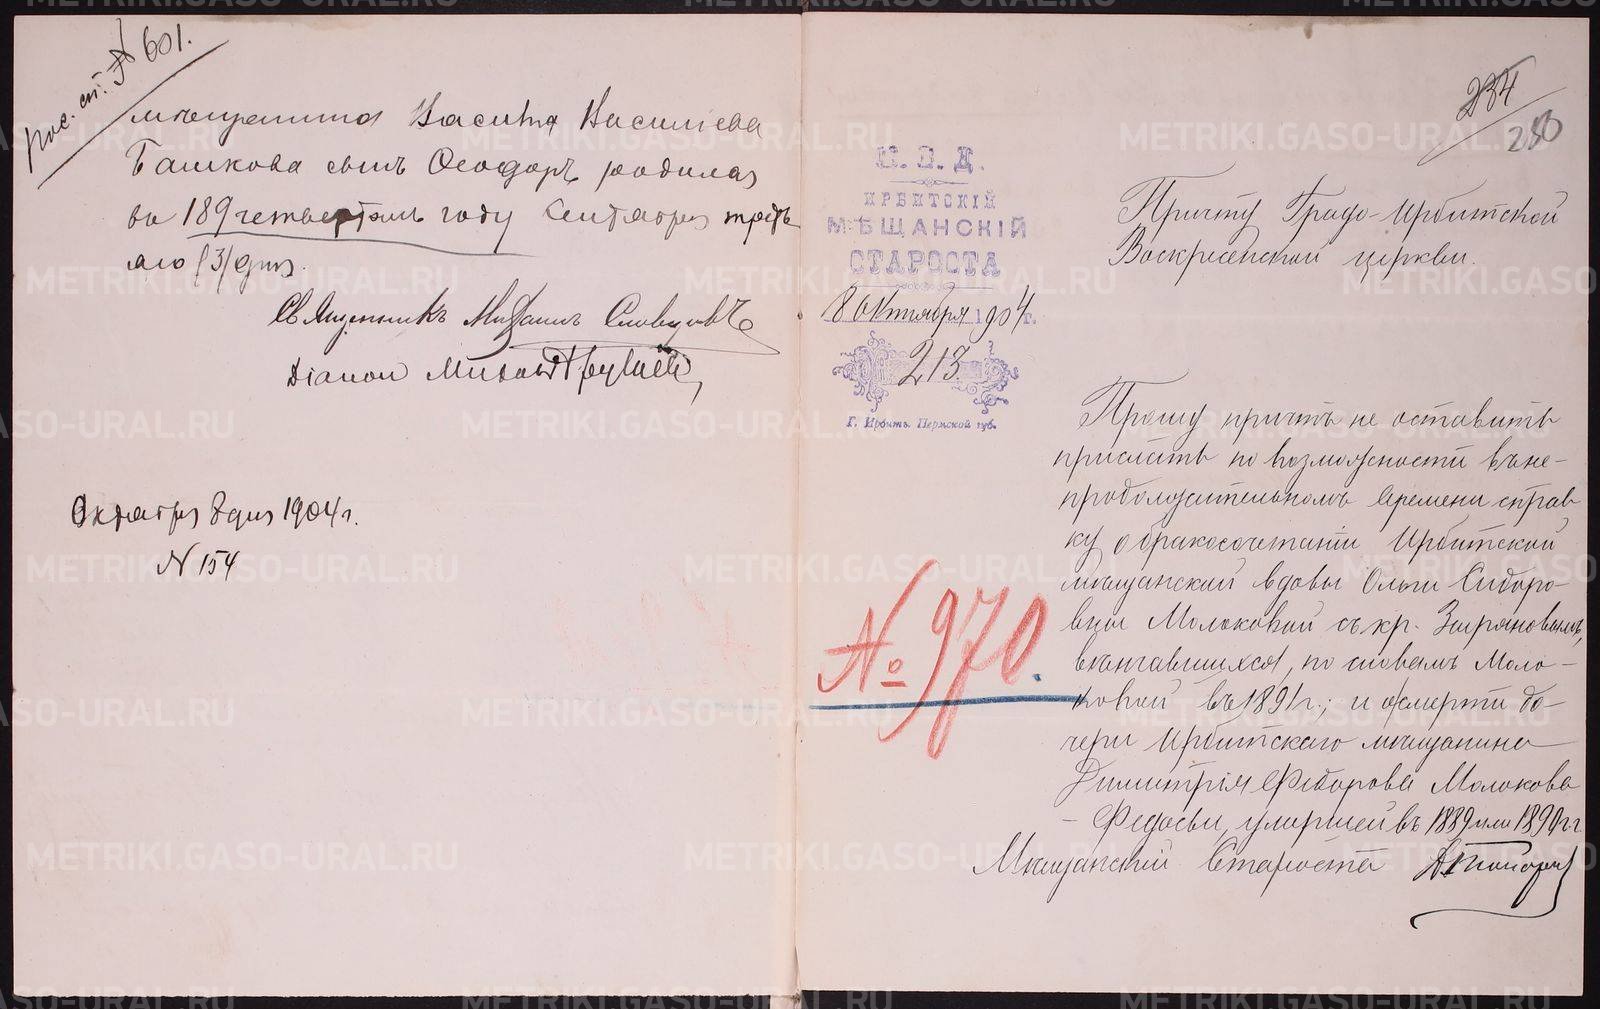 рос. сп. № 601.
мѣщанина Василія Васильева
Башкова сынъ Ѳеодоръ родился
въ 189четвертомъ году Сентября треть
яго (3) дня.
Священникъ Михаилъ Словцовъ
Діаконъ
Октября 8 дня 1904 г.
№ 154
234
250
М. В. Д.
ИРБИТСКІЙ
МѢЩАНСКІЙ
СТАРОСТА
8 Октября 1904 г.
213.
Г. Ирбитъ Пермской губ.
Причту Градо-Ирбитской
Воскресенской церкви.
Прошу причтъ не оставить
прислать по возможности въ не-
продолжительномъ времени справ
ку о бракосочетаніи Ирбитской
мѣщанской вдовы Ольги Сидоро-
вны Молоковой съ кр. Зыряновымъ,
вѣнчавшихся, по словамъ Моло-
ковой въ 1891 г.; и о смерти до-
чери Ирбитскаго мѣщанина
Димитрія Федорова Молокова
- Федосьи, умершей въ 1889 или 1890 г.г.
Мѣщанскій Староста
№ 970.
METRIKI.GASO-URAL.RU